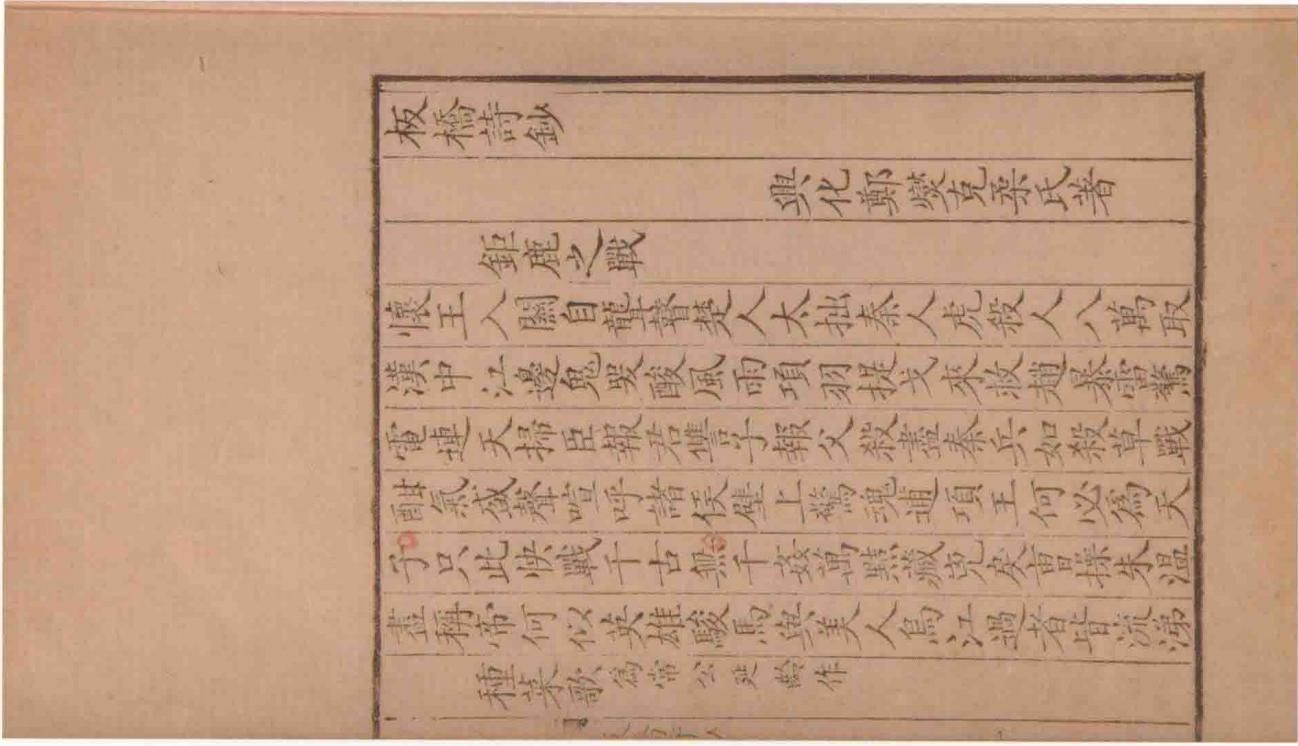 板橋詩鈔
興化鄭燮克柔氏著
鉅鹿之戰
懷王入關自聾瞽楚人太拙秦人虎殺人八萬取
漢中江邊鬼哭酸風雨項羽提戈來救趙暴雷驚
電連天掃臣報君讎子報父殺盡秦兵如殺草戰
酣氣盛聲喧呼諸侯壁上驚魂逋項王何必為天
子只此快戰千古無千姦萬黠藏兇戾曹操朱溫
盡稱帝何似英雄駿馬與美人烏江過者皆流涕
種菜歌為常公延齡作